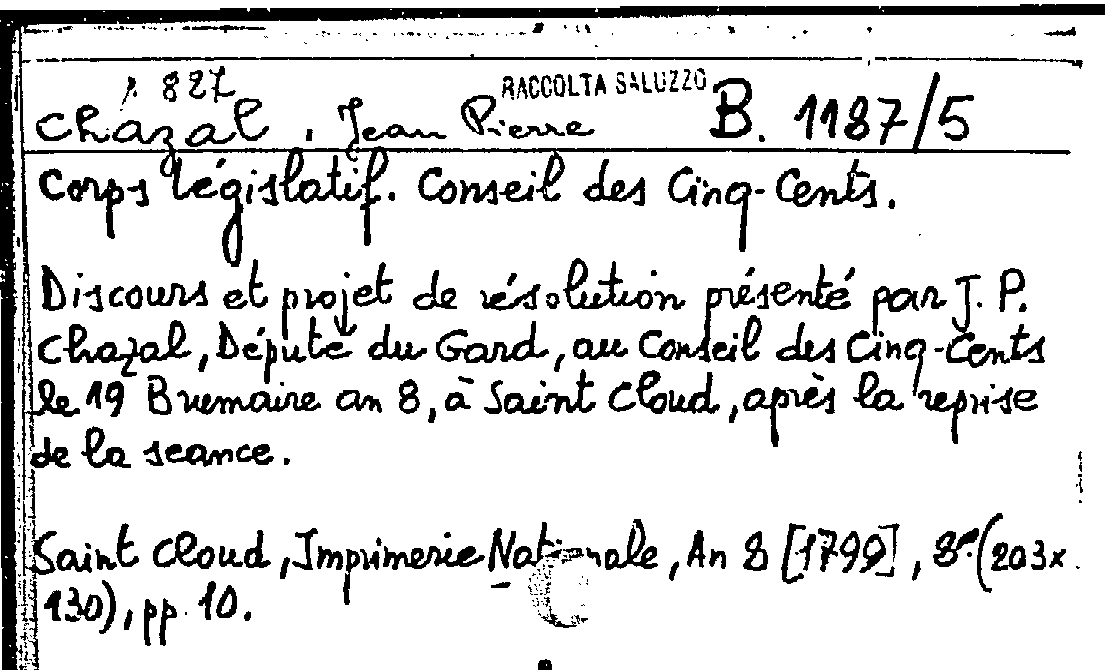 1 827
RACCOLTA SALUZZO
Chazal, Jean Pierre B. 1187/5
Corps Législatif. Conseil des Cinq-Cents.
Discours et projet de résolution présenté par J. P.
Chazal, Député du Gard, au Conseil des Cinq-Cents
le 19 Brumaire an 8, à Saint Cloud, après la reprise
de la seance.
Saint Cloud, Imprimerie Nationale, An 8 [1799], 8º. (203x
130), pp. 10.